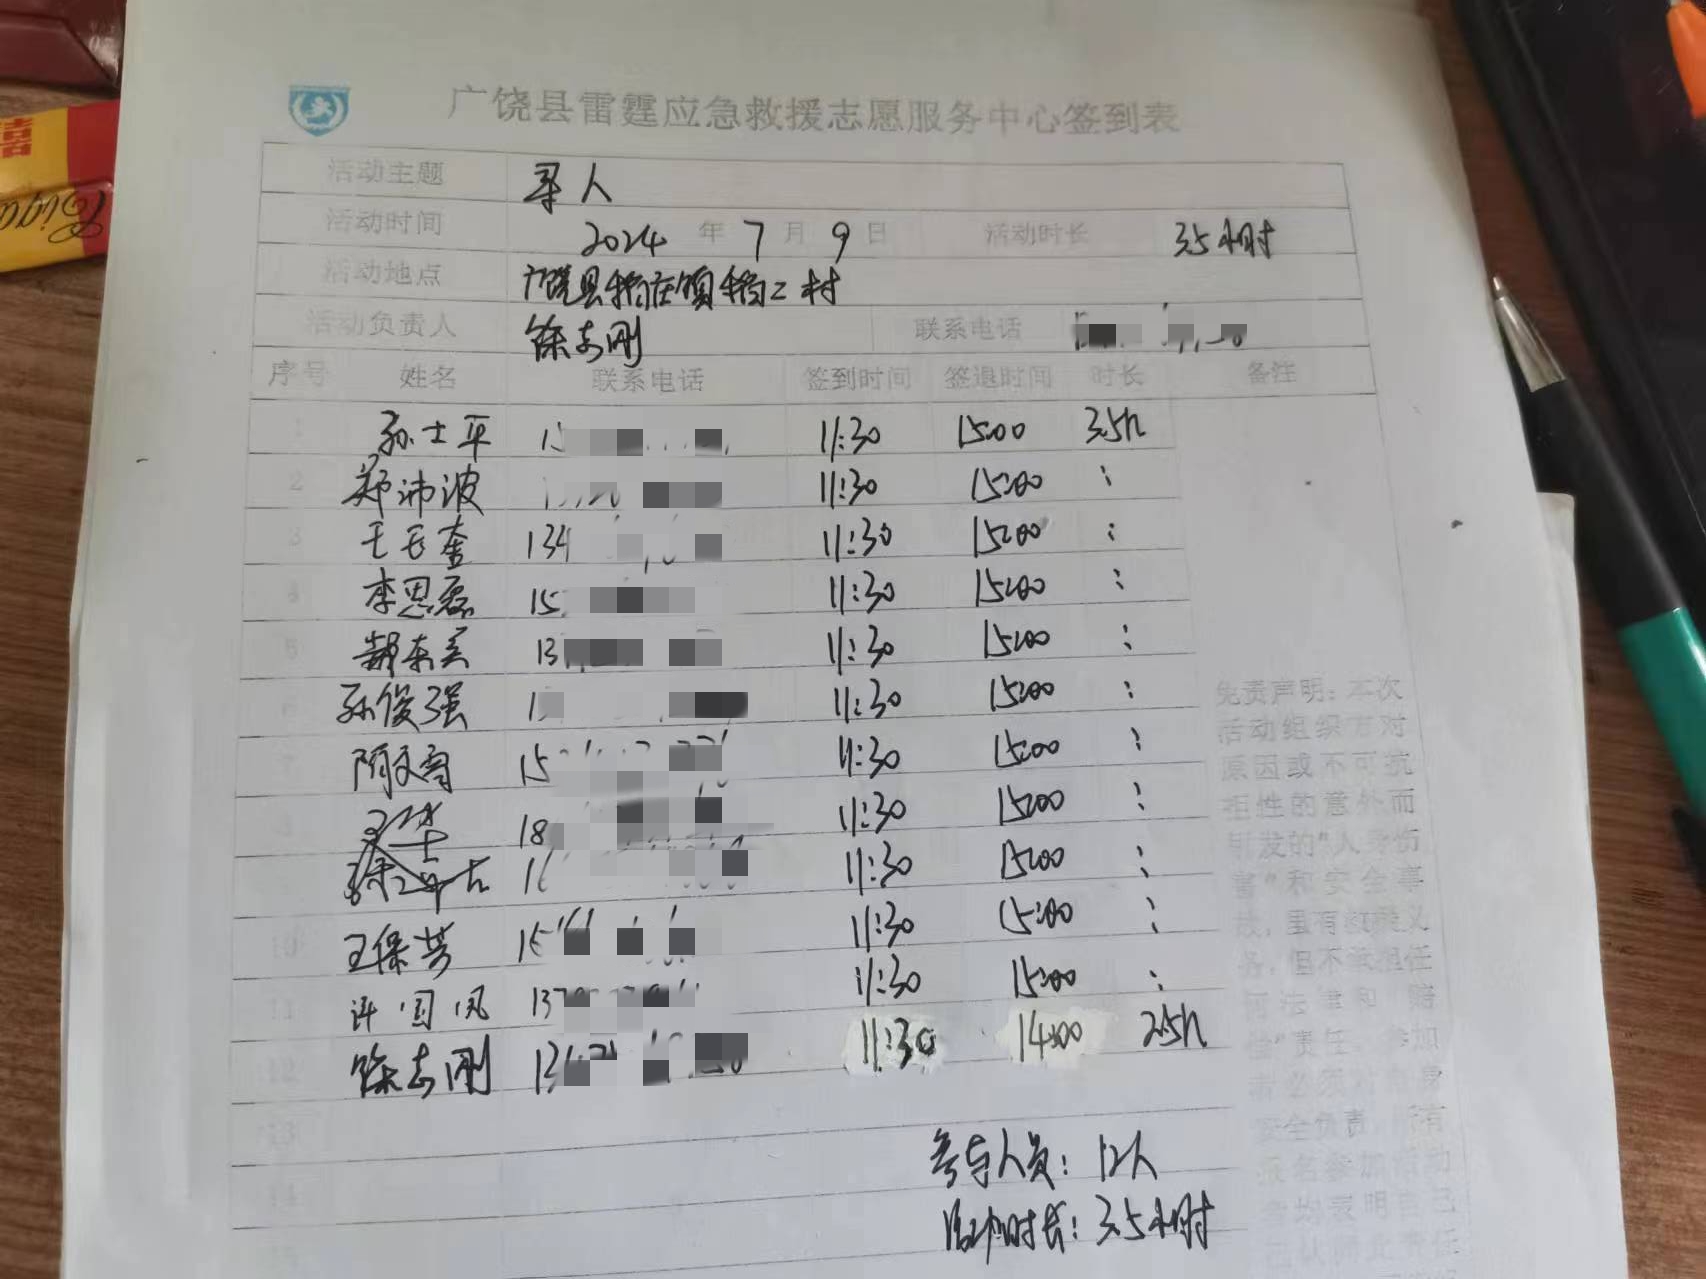 广饶县雷霆应急救援志愿服务中心签到表
活动主题 寻人
活动时间 2024 年 7 月 9 日 活动时长 3.5小时
活动地点 广饶县稻庄镇稻二村
活动负责人 徐志刚 联系电话
序号 姓名 联系电话 签到时间 签退时间 时长 备注
1 孙士平 15 11:30 15:00 3.5h
2 郑沛波 11:30 15:00 :
3 王 奎 134 11:30 15:00 :
4 李恩磊 15 11:30 15:00 :
5 郝东 13 11:30 15:00 :
6 孙俊强 1 11:30 15:00 :
7 隋文 15 11:30 15:00 :
8 王华 18 11:30 15:00 :
11:30 15:00 :
10 王保芳 15 11:30 15:00 :
11 许国凤 137 11:30 15:00 :
12 徐志刚 13 11:30 14:00 2.5h
13
14
15
参与人员：12人
活动时长：3.5小时
免责声明：本次
活动组织方对
原因或不可抗
拒性的意外而
引发的“人身伤
害”和安全事
故，虽有救援义
务，但不承担任
何法律和 赔
偿”责任。参加
者必须对自身
安全负责 所有
报名参加活动
者均表明自己